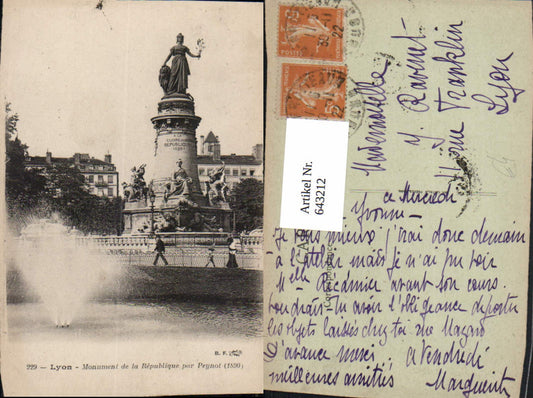 A LA
GLOIRE DE LA
REPUBLIQUE
229 - Lyon - Monument de la République par Peynot (1890)
B. F.
Artikel Nr.
643212
Mademoiselle
Y. Ravinet
Franklin
Lyon
ce Mercredi
Yvonne -
Je vais mieux j'irai donc demain
à l'atelier mais je n'ai pu voir
Melle Récamier avant son cours.
Voudrais-tu avoir l'obligeance de porter
les objets laissés chez toi rue Mazard
d'avance merci. A Vendredi
meilleures amitiés Marguerite